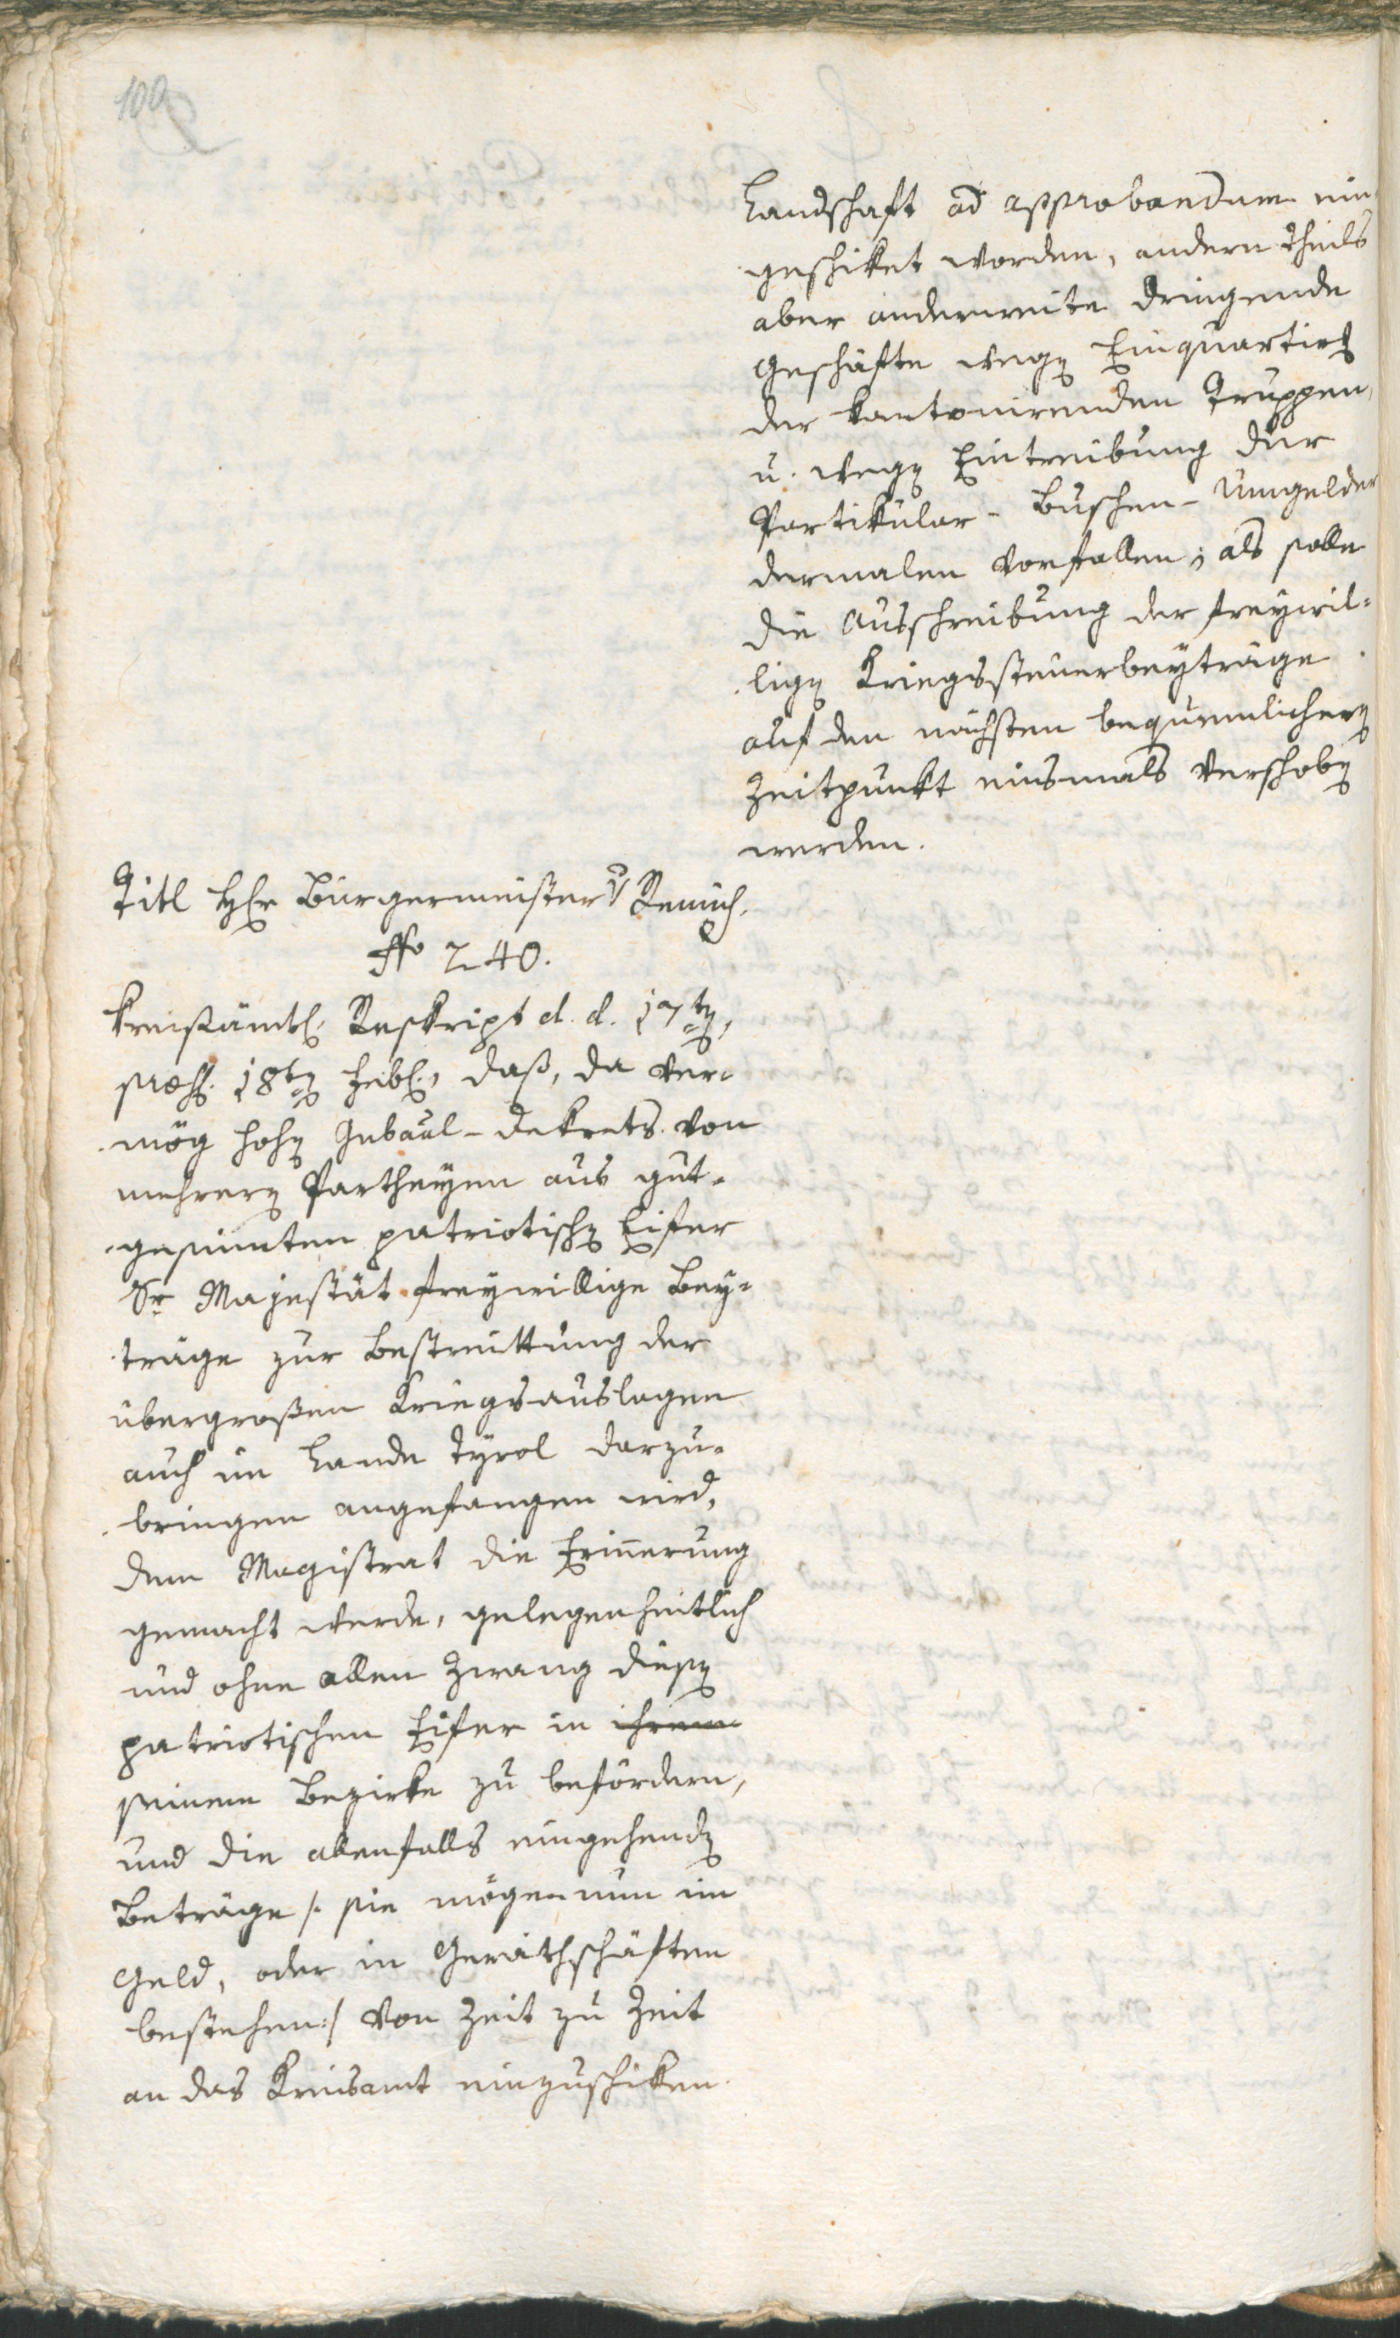 100
Landschaft ad approbandum ein
geschiket worden, andern theils
aber anderweite dringende
Geschäfte weg Einquartir
der kantonirenden Truppen,
u. weg Eintreibung der
Partikular-Buschen-Umgelder
dermalen vorfallen; als solle
die Ausschreibung der freywil-
lig Kriegssteuerbeyträge
auf den nächsten bequemlichern
Zeitpunkt einsmals verschob
werden.
Titl Hr Bürgermeister v Remich.
No 240.
Kreisämtl. Reskript d. d. 17t,
præs. 18t hbl., daß, da ver-
mög hoh Gubaul-Dekrets von
mehrern Partheyen aus gut-
gesinnten patriotisch Eifer
Sr Majestät freywillige Bey-
träge zur Bestreittung der
übergroßen Kriegsauslagen
auch im Lande Tyrol darzu-
bringen angefangen wird,
dem Magistrat die Erinnerung
gemacht werde, gelegenheitlich
und ohne allen Zwang diesen
patriotischen Eifer in ihrem
seinem Bezirke zu befördern,
und die allenfalls eingehend
Beträge /: sie mögen nun im
Geld, oder in Geräthschäften
bestehen :/ von Zeit zu Zeit
an das Kreisamt einzuschiken.